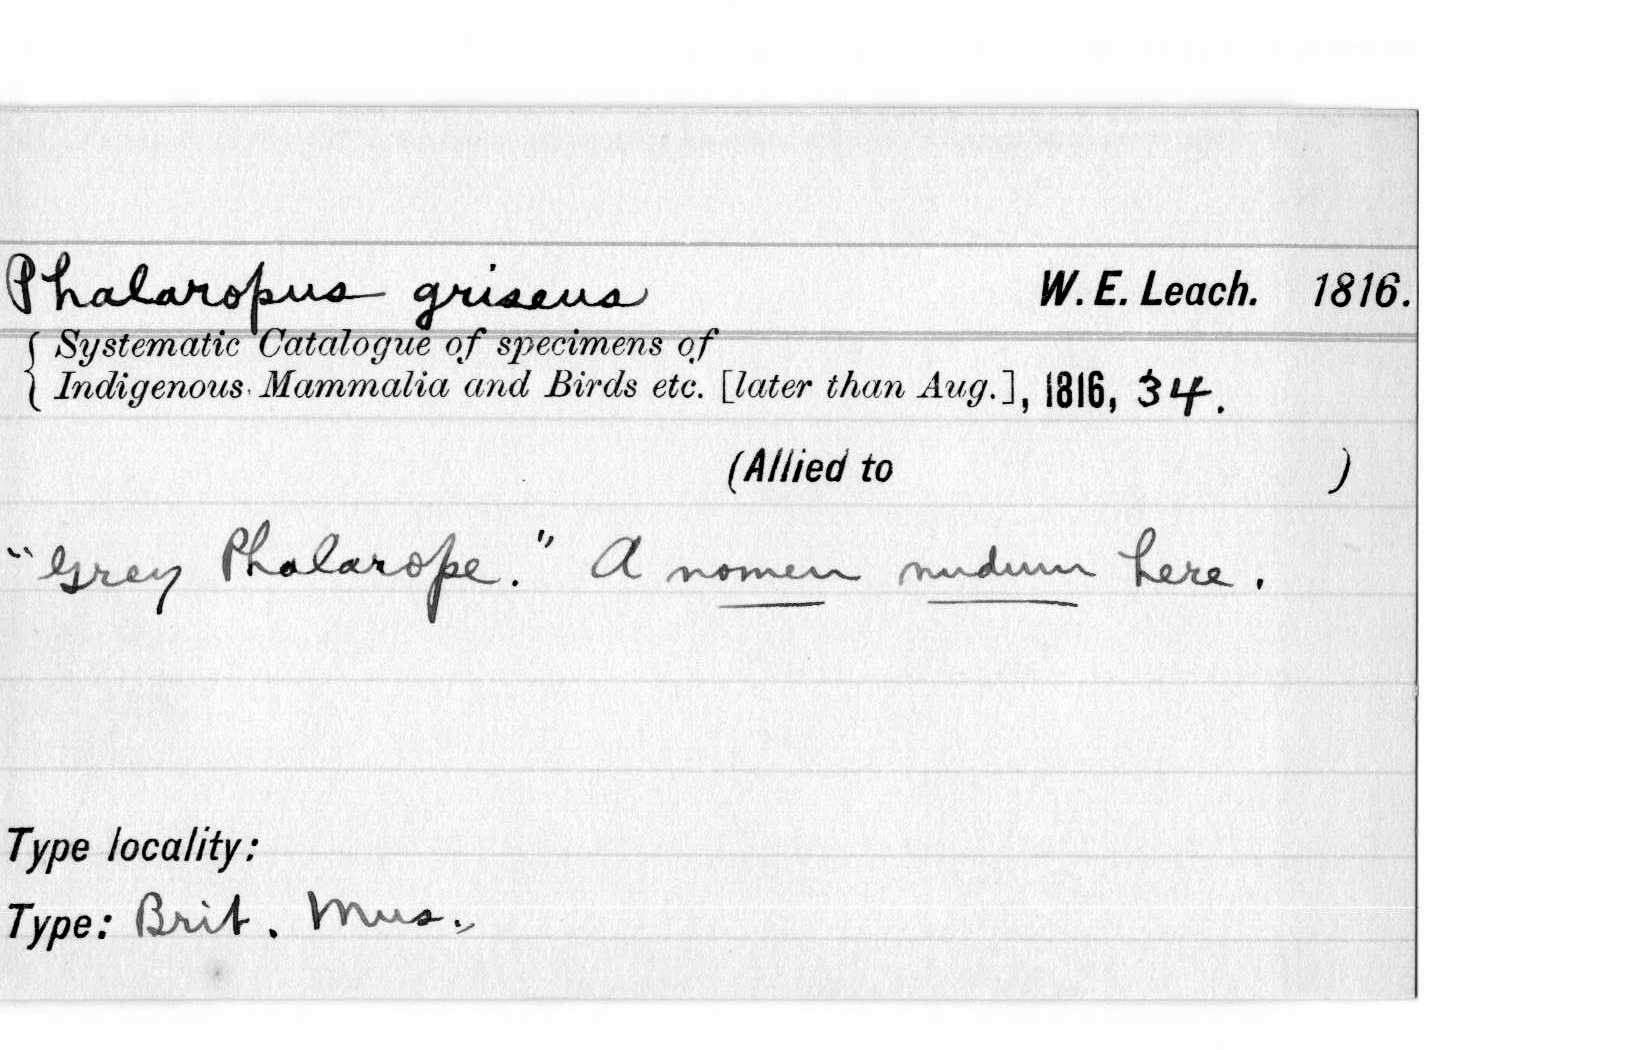 Phalaropus griseus W. E. Leach. 1816.
{ Systematic Catalogue of specimens of
Indigenous Mammalia and Birds etc. [later than Aug.], 1816, 34.
(Allied to )
"Grey Phalarope." A nomen nudum here.
Type locality:
Type: Brit. Mus.,